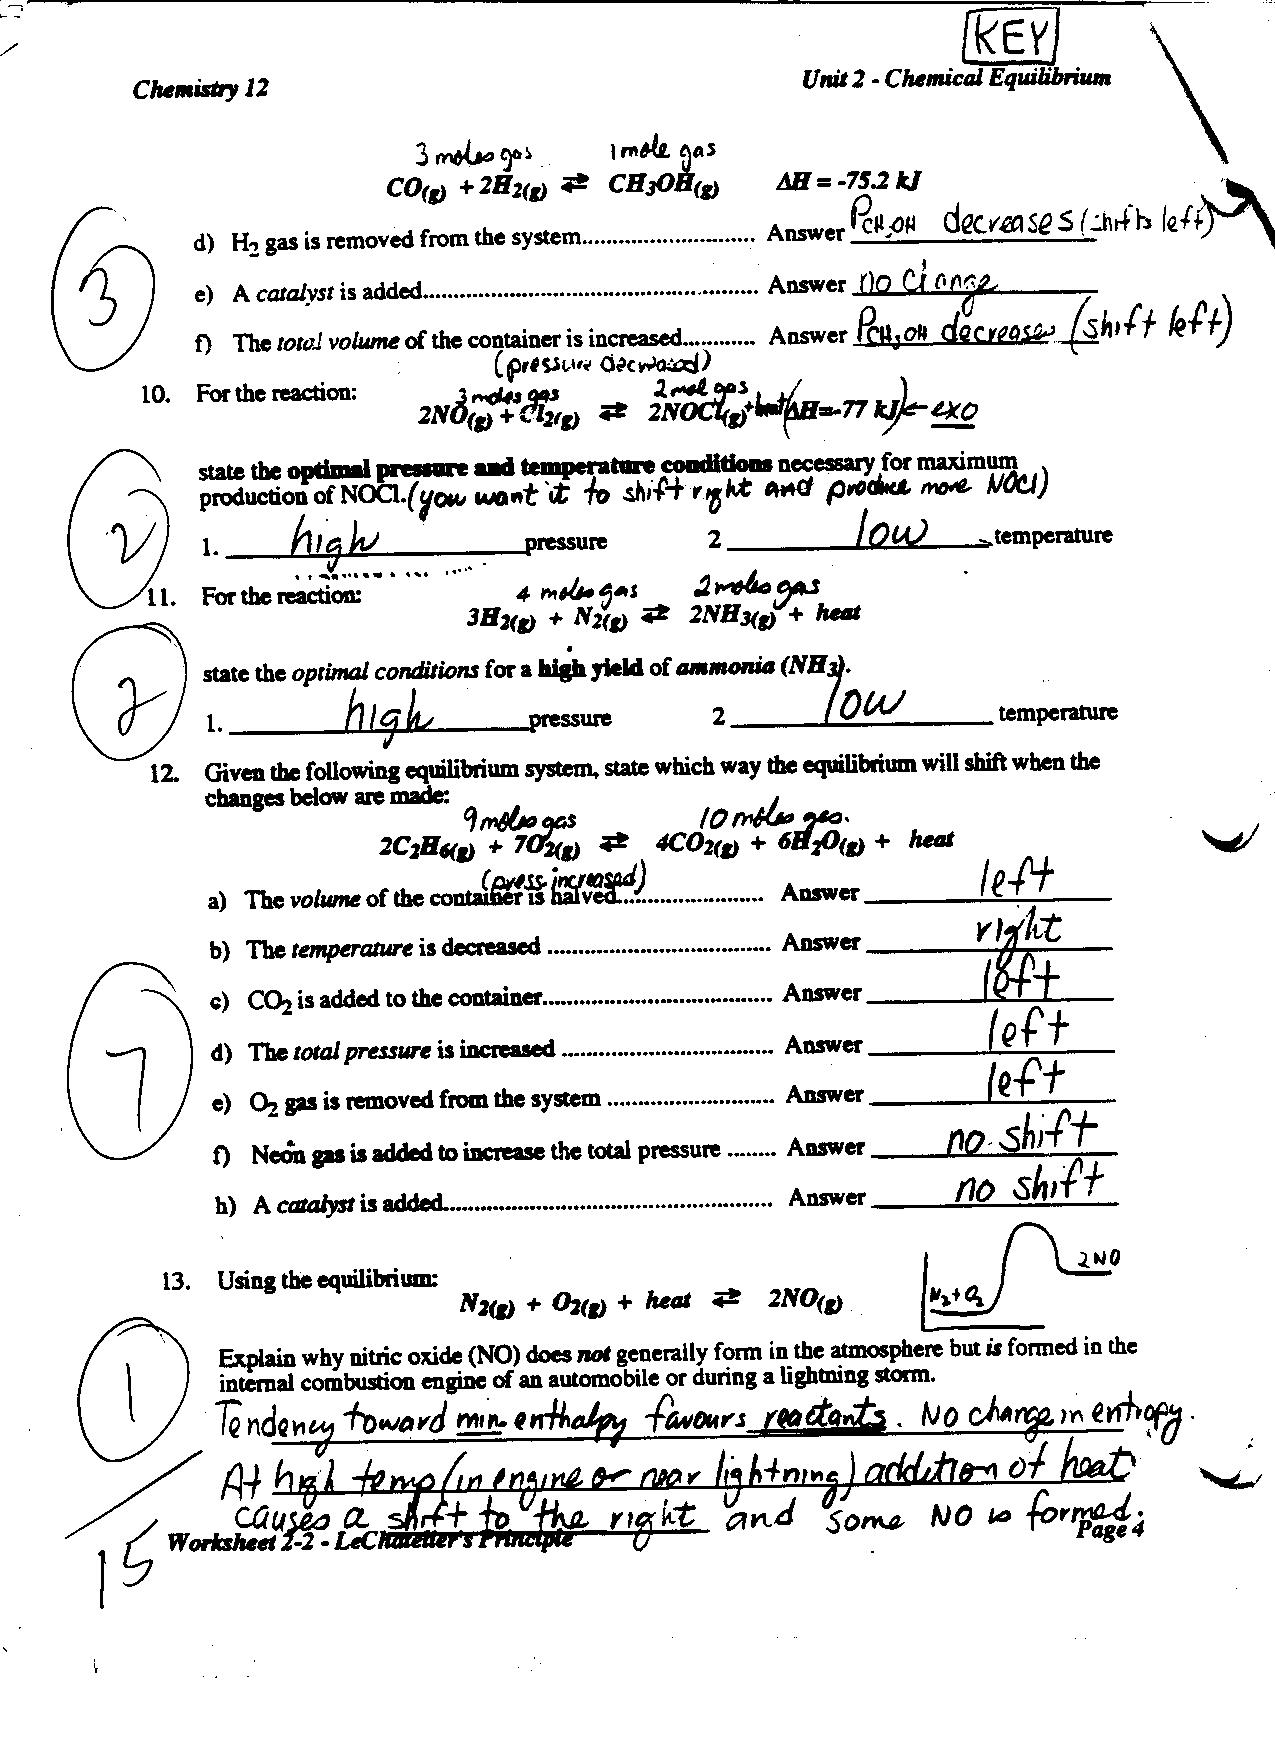 KEY
Chemistry 12 Unit 2 - Chemical Equilibrium
3 moles gas 1 mole gas
CO(g) + 2H2(g) ⇄ CH3OH(g) ΔH = -75.2 kJ
d) H2 gas is removed from the system............................ Answer PCH3OH decreases (shifts left)
e) A catalyst is added........................................................ Answer no change
f) The total volume of the container is increased............ Answer PCH3OH decreases (shift left)
(pressure decreased)
10. For the reaction: 3 moles gas 2 mol gas
2NO(g) + Cl2(g) ⇄ 2NOCl(g) + heat (ΔH=-77 kJ) ← exo
state the optimal pressure and temperature conditions necessary for maximum
production of NOCl. (you want it to shift right and produce more NOCl)
1. high pressure 2 low temperature
11. For the reaction: 4 moles gas 2 moles gas
3H2(g) + N2(g) ⇄ 2NH3(g) + heat
state the optimal conditions for a high yield of ammonia (NH3).
1. high pressure 2 low temperature
12. Given the following equilibrium system, state which way the equilibrium will shift when the
changes below are made:
9 moles gas 10 moles gas.
2C2H6(g) + 7O2(g) ⇄ 4CO2(g) + 6H2O(g) + heat
(press. increased)
a) The volume of the container is halved........................ Answer left
b) The temperature is decreased .................................... Answer right
c) CO2 is added to the container..................................... Answer left
d) The total pressure is increased .................................. Answer left
e) O2 gas is removed from the system ........................... Answer left
f) Neon gas is added to increase the total pressure ........ Answer no shift
h) A catalyst is added...................................................... Answer no shift
13. Using the equilibrium:
N2(g) + O2(g) + heat ⇄ 2NO(g)
N2+O2 2NO
Explain why nitric oxide (NO) does not generally form in the atmosphere but is formed in the
internal combustion engine of an automobile or during a lightning storm.
Tendency toward min. enthalpy favours reactants. No change in entropy.
At high temp (in engine or near lightning) addition of heat
causes a shift to the right and some NO is formed.
Worksheet 2-2 - LeChatelier's Principle Page 4
3
2
2
7
1
15